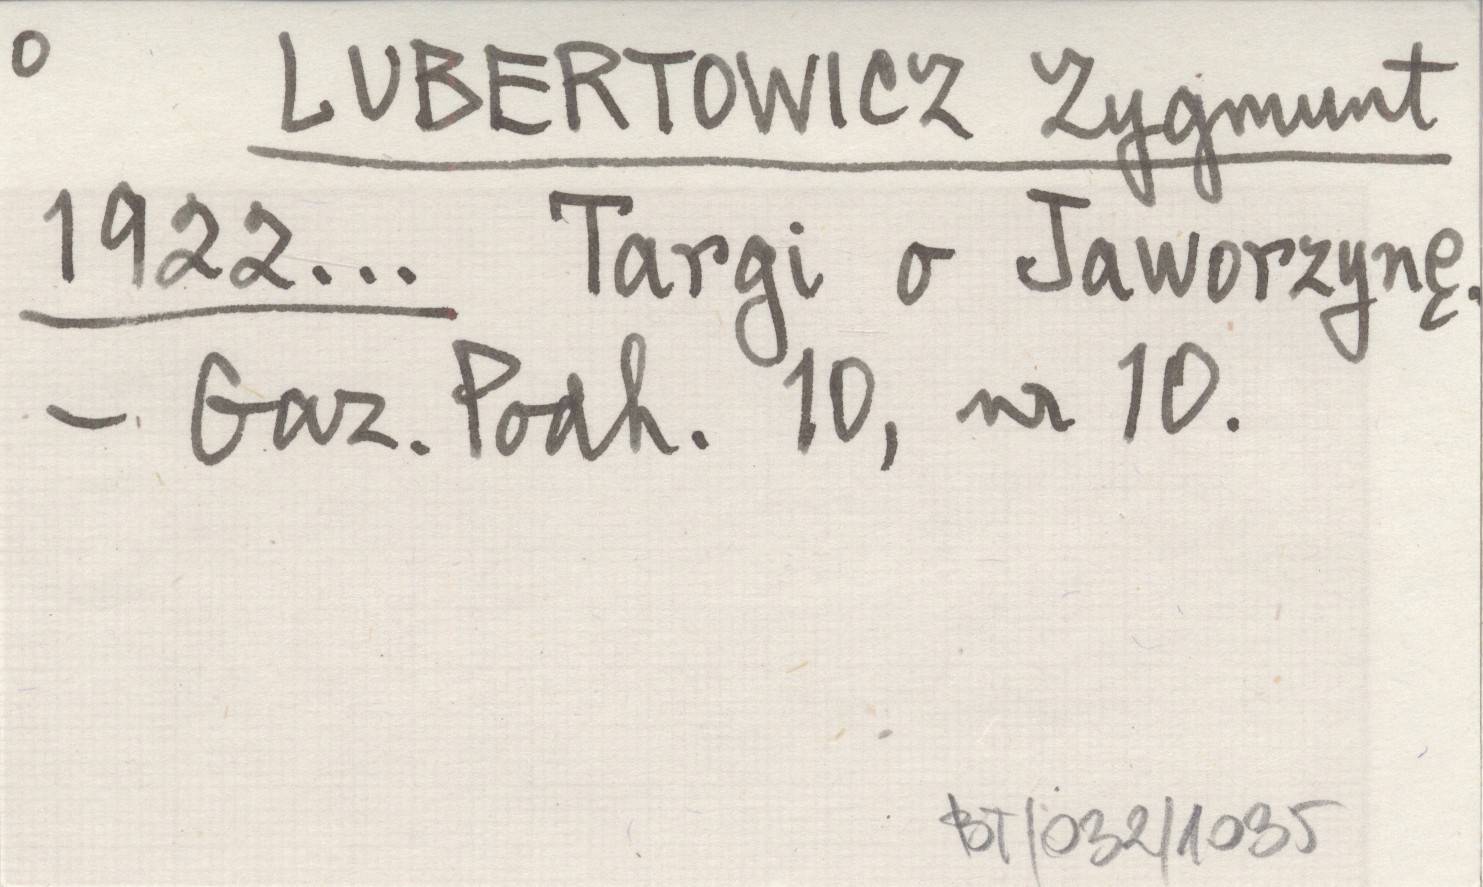 o LUBERTOWICZ Zygmunt
1922... Targi o Jaworzynę.
- Gaz. Podh. 10, nr 10.
BT/032/1035